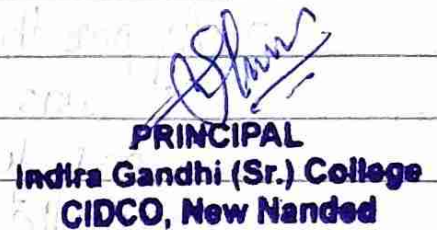 PRINCIPAL
Indira Gandhi (Sr.) College
CIDCO, New Nanded